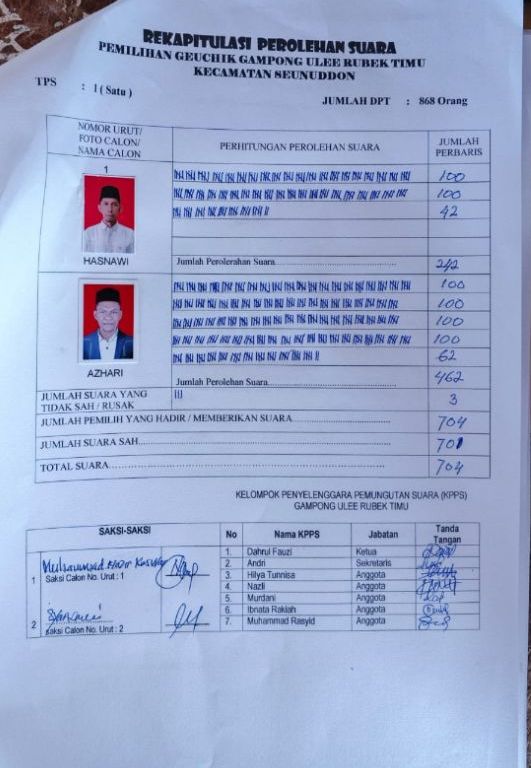 REKAPITULASI PEROLEHAN SUARA
PEMILIHAN GEUCHIK GAMPONG ULEE RUBEK TIMU
KECAMATAN SEUNUDDON
TPS : 1 ( Satu )
JUMLAH DPT : 868 Orang
NOMOR URUT/ FOTO CALON/ NAMA CALON PERHITUNGAN PEROLEHAN SUARA JUMLAH PERBARIS
1
100
100
42
HASNAWI
Jumlah Perolerahan Suara 242
100
100
100
100
62
AZHARI
Jumlah Perolehan Suara 462
JUMLAH SUARA YANG TIDAK SAH / RUSAK III 3
JUMLAH PEMILIH YANG HADIR / MEMBERIKAN SUARA 704
JUMLAH SUARA SAH 701
TOTAL SUARA 704
KELOMPOK PENYELENGGARA PEMUNGUTAN SUARA (KPPS)
GAMPONG ULEE RUBEK TIMU
SAKSI-SAKSI
1
Saksi Calon No. Urut : 1
2
saksi Calon No. Urut : 2
No Nama KPPS Jabatan Tanda Tangan
1. Dahrul Fauzi Ketua
2. Andri Sekretaris
3. Hilya Tunnisa Anggota
4. Nazli Anggota
5. Murdani Anggota
6. Ibnata Rakiah Anggota
7. Muhammad Rasyid Anggota